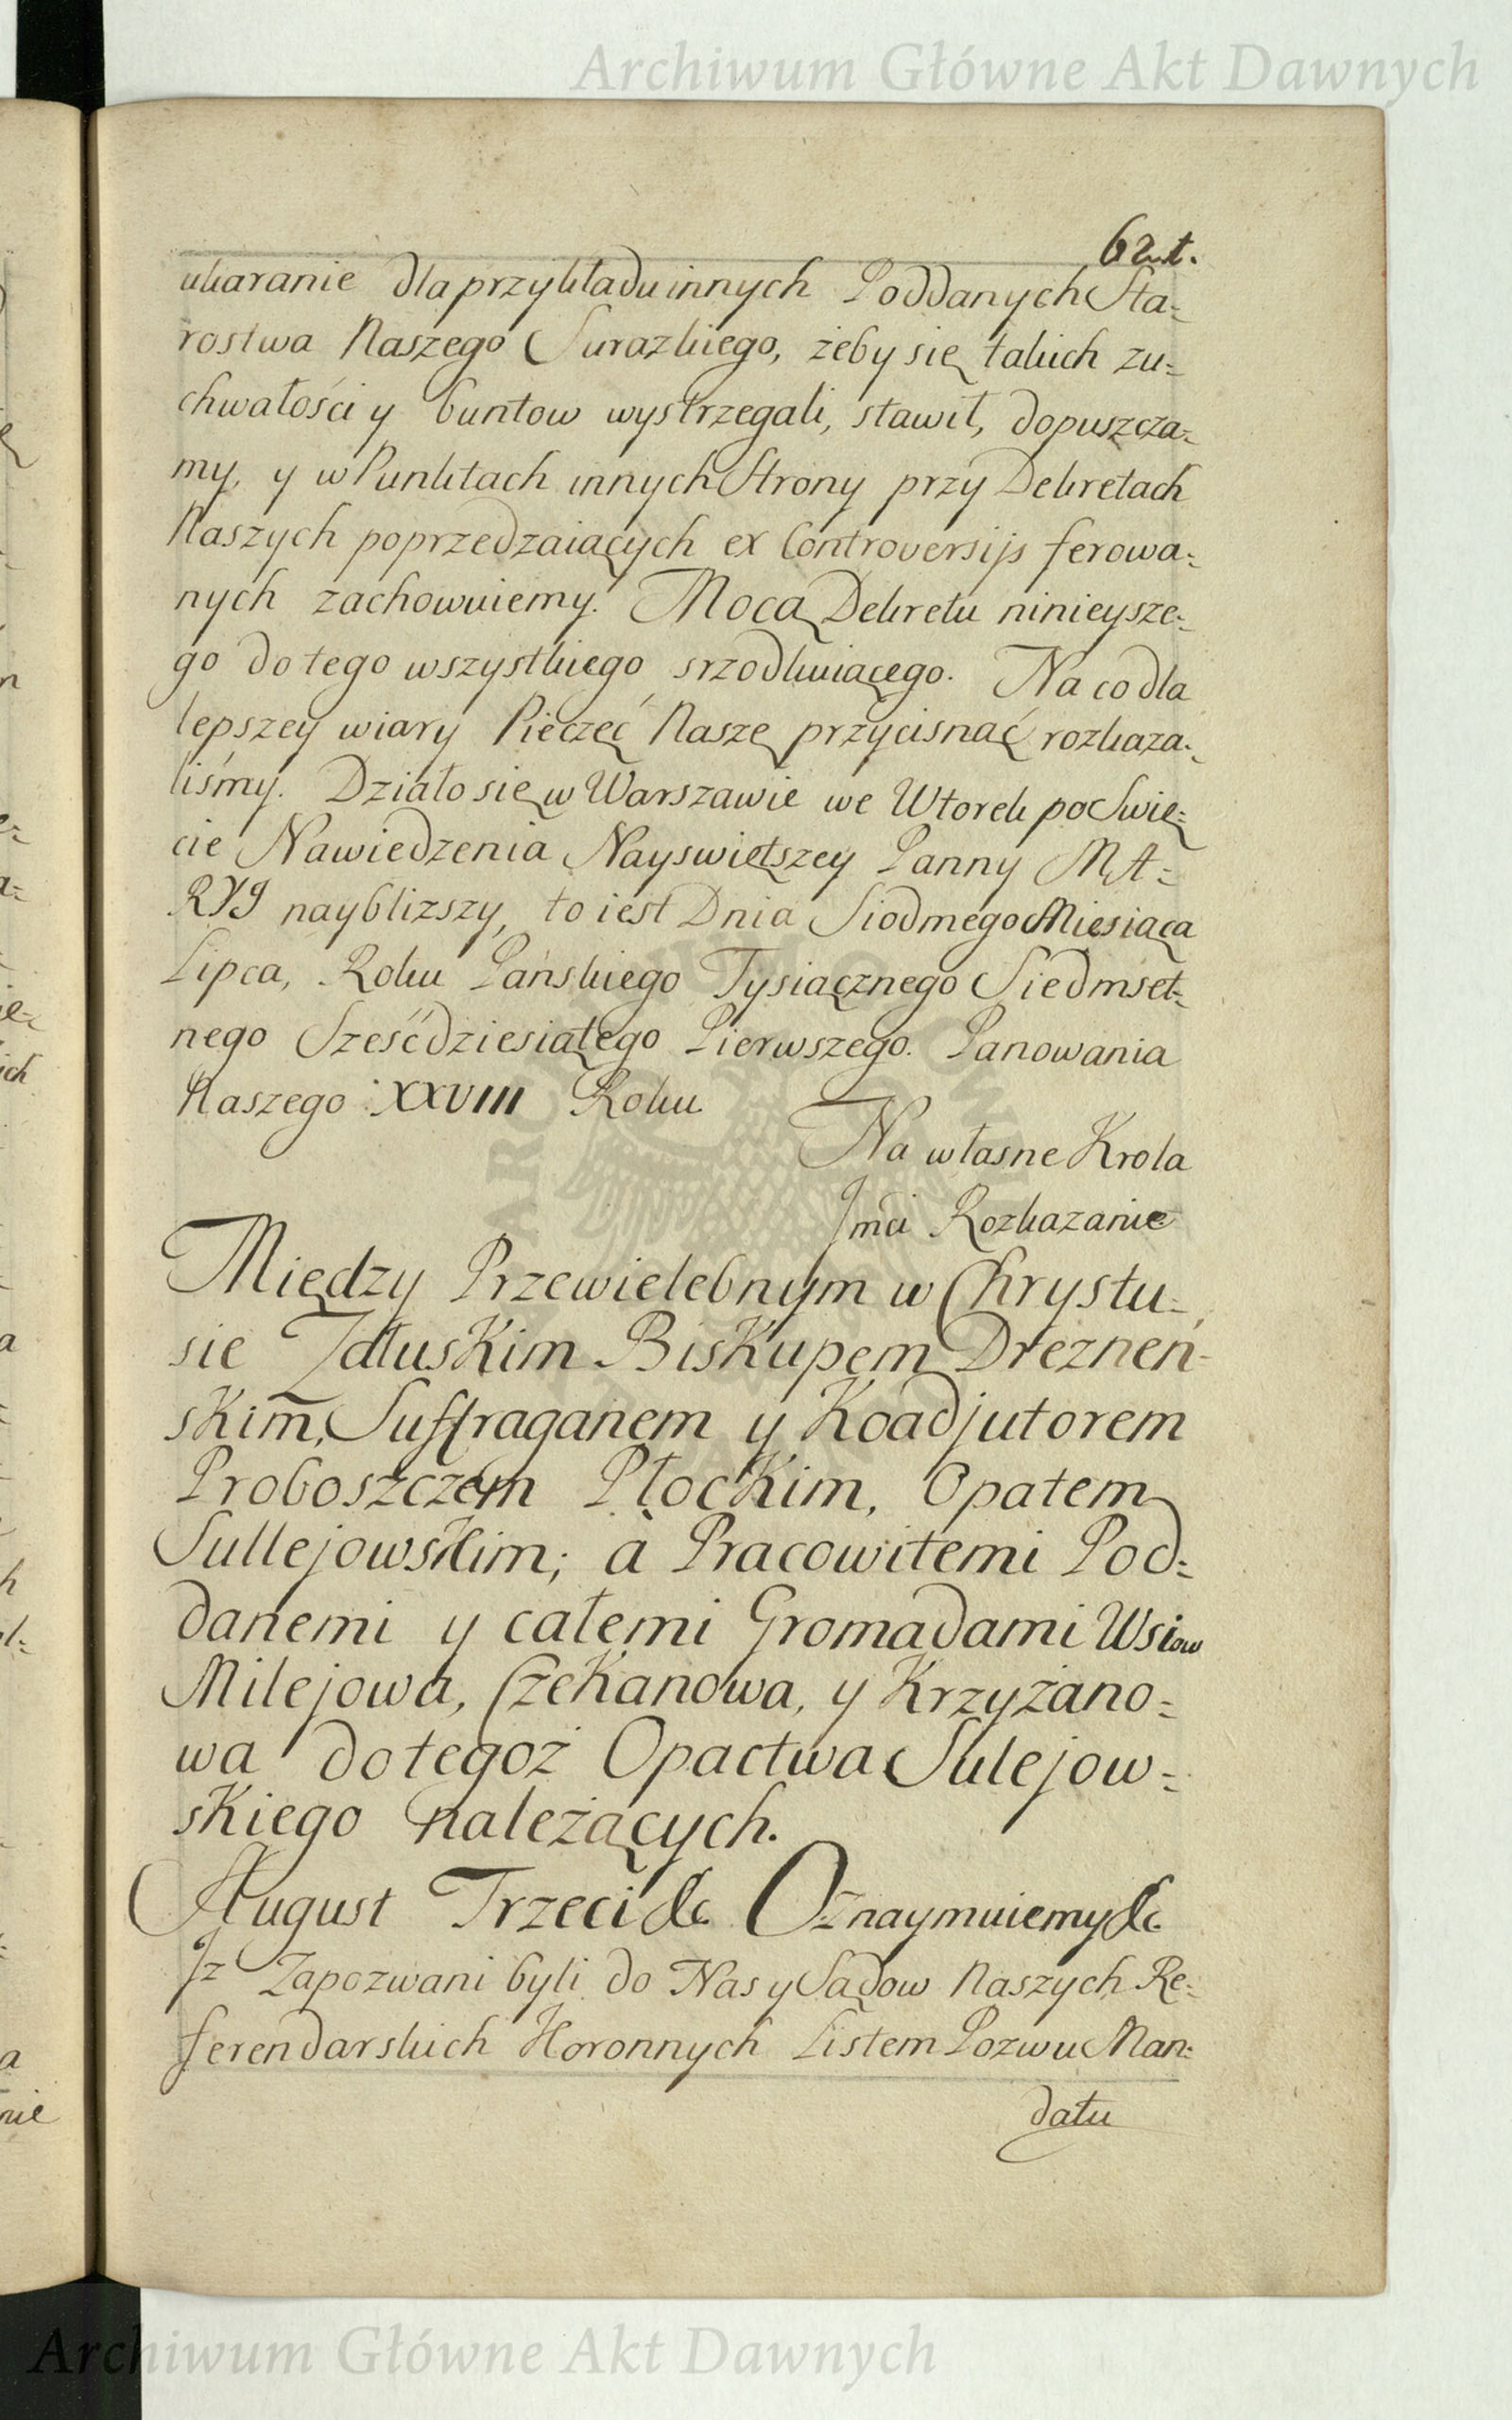 Archiwum Główne Akt Dawnych
ukaranie dla przykładu innych Poddanych Sta-
rostwa Naszego Surazkiego, żeby się takich zu-
chwałości y buntow wystrzegali, stawił, dopuszcza-
my, y w Punktach innych Strony przy Dekretach
Naszych poprzedzaiących ex Controversijs ferowa-
nych zachowuiemy. Mocą Dekretu ninieysze-
go do tego wszystkiego srzodkuiącego. Na co dla
lepszey wiary Pieczęć Naszę przycisnąć rozkaza-
liśmy. Działo się w Warszawie we Wtorek po Swię-
cie Nawiedzenia Nayswiętszey Panny MA-
RYI nayblizszy, to iest Dnia Siodmego Miesiąca
Lipca, Roku Pańskiego Tysiącznego Siedmset-
nego Sześćdziesiątego Pierwszego. Panowania
Naszego XXVIII Roku
Na własne Krola
Jmci Rozkazanie
Między Przewielebnym w Chrystu-
sie Załuskim Biskupem Drezneń-
skim, Suffraganem y Koadjutorem
Proboszczem Płockim, Opatem
Sullejowskim; à Pracowitemi Pod-
danemi y całemi Gromadami Wsiow
Milejowa, Czekanowa, y Krzyżano-
wa do tegoż Opactwa Sulejow-
skiego należących.
August Trzeci &c Oznaymuiemy &c.
Jz Zapozwani byli do Nas y Sądow Naszych Re-
ferendarskich Koronnych Listem Pozwu Man-
datu
Archiwum Główne Akt Dawnych